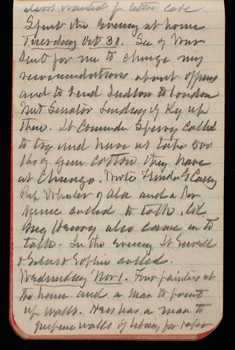 Spent the evening at home
Tuesday Oct 31. Sec of War
Sent for me to change my
recommendations about offices
and to send Ludlow to London
Met Senator Lindsay of Ky up
there. Lt Comndr Sperry called
to try and have us take 500
lbs of gun cotton they have
at Chicago. Wrote
Rep Wheeler of Ala and a Rev
called to talk. Col
Guy Henry also came in to
talk. In the evening Lt Sewell
Sophie called.
Wednesday Nov 1. Four painters at
the house and a man to point
up walls. Hess has a man to
prepare walls of library for paper